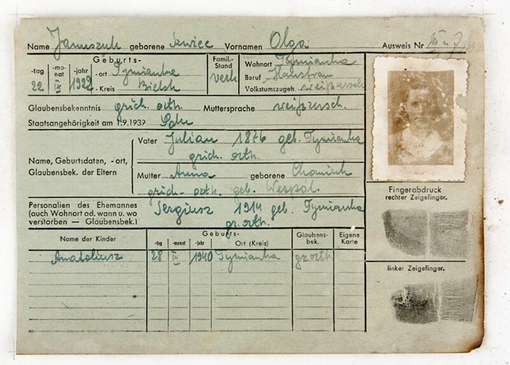 Name Janiszuk geborene Szwiec Vornamen Olga Ausweis Nr.
Geburts- Famil.- Stand Wohnort Tymianka
-tag -mo-nat -jahr -ort Tymianka verh Beruf Hausfrau
22 1922 -Kreis Bielsk Volkstumszugeh. weißruss.
Glaubensbekenntnis griech. orth. Muttersprache weißruss.
Staatsangehörigkeit am 1.9.1939 Poln
Vater Julian 1876 geb. Tymianka
griech. orth.
Name, Geburtsdaten, -ort,
Glaubensbek. der Eltern
Mutter Anna geborene
griech. orth. geb.
Fingerabdruck
rechter Zeigefinger.
Personalien des Ehemannes
(auch Wohnort od. wann u. wo
verstorben — Glaubensbek.)
Sergiusz 1914 geb. Tymianka
gr. orth.
Name der Kinder Geburts- Glaubens-bek. Eigene Karte
-tag -monat -jahr Ort (Kreis)
Anatoliusz 28 1940 Tymianka gr. orth
linker Zeigefinger.